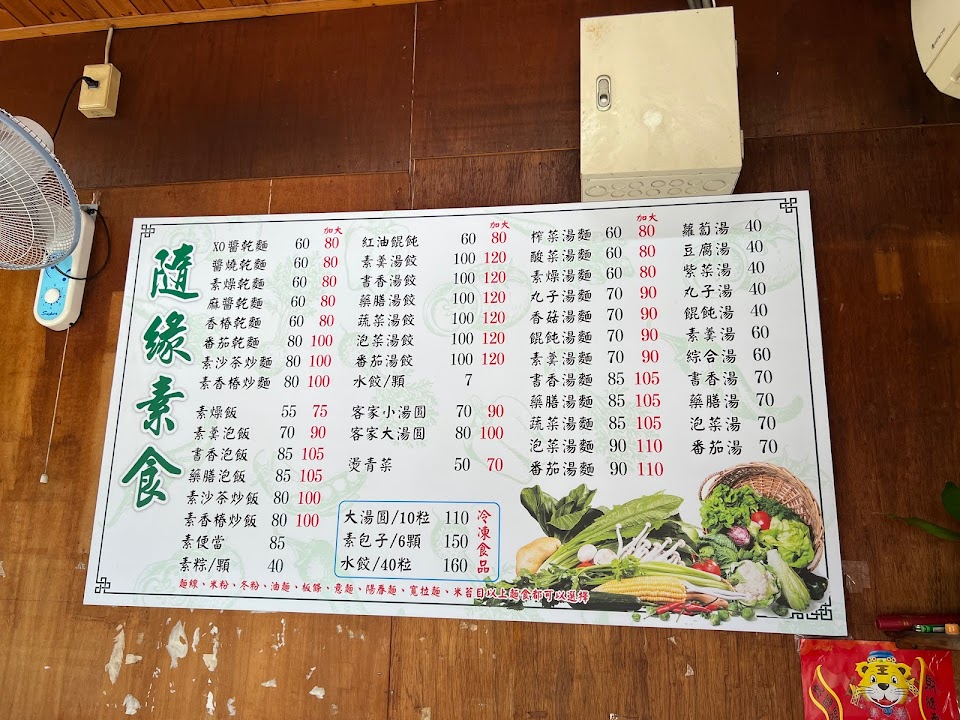 隨緣素食
加大
XO醬乾麵 60 80
醬燒乾麵 60 80
素燥乾麵 60 80
麻醬乾麵 60 80
香椿乾麵 60 80
番茄乾麵 80 100
素沙茶炒麵 80 100
素香椿炒麵 80 100
素燥飯 55 75
素羹泡飯 70 90
書香泡飯 85 105
藥膳泡飯 85 105
素沙茶炒飯 80 100
素香椿炒飯 80 100
素便當 85
素粽/顆 40
加大
紅油餛飩 60 80
素羹湯餃 100 120
書香湯餃 100 120
藥膳湯餃 100 120
蔬菜湯餃 100 120
泡菜湯餃 100 120
番茄湯餃 100 120
水餃/顆 7
客家小湯圓 70 90
客家大湯圓 80 100
燙青菜 50 70
大湯圓/10粒 110
素包子/6顆 150
水餃/40粒 160
冷凍食品
加大
榨菜湯麵 60 80
酸菜湯麵 60 80
素燥湯麵 60 80
丸子湯麵 70 90
香菇湯麵 70 90
餛飩湯麵 70 90
素羹湯麵 70 90
書香湯麵 85 105
藥膳湯麵 85 105
蔬菜湯麵 85 105
泡菜湯麵 90 110
番茄湯麵 90 110
蘿蔔湯 40
豆腐湯 40
紫菜湯 40
丸子湯 40
餛飩湯 40
素羹湯 60
綜合湯 60
書香湯 70
藥膳湯 70
泡菜湯 70
番茄湯 70
麵線、米粉、冬粉、油麵、板條、意麵、陽春麵、寬拉麵、米苔目以上麵食都可以選擇